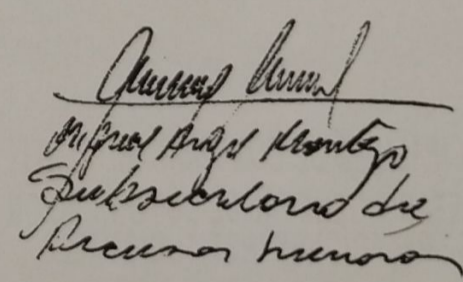 Miguel Angel Montejo
Subsecretario de
Recursos Humanos